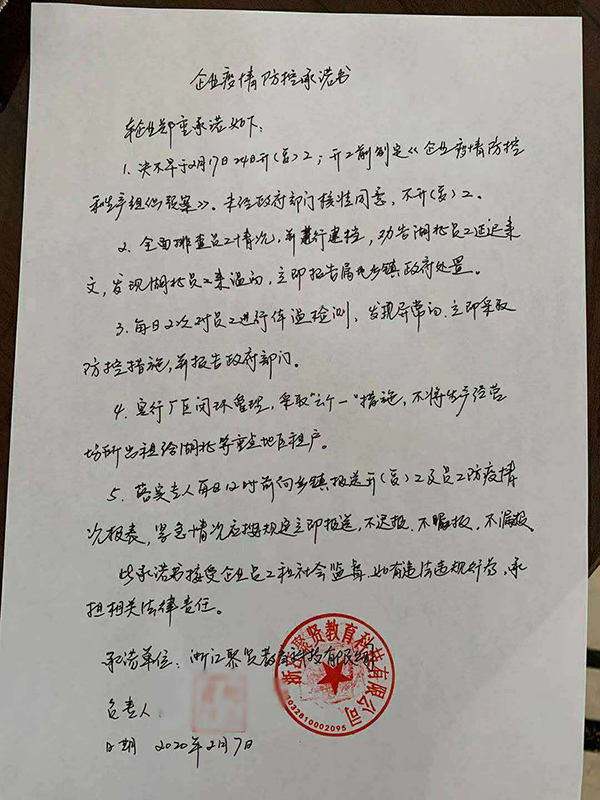 企业疫情防控承诺书
本企业郑重承诺如下：
1. 决不早于2月17日24时开(复)工；开工前制定《企业疫情防控
和生产组织预案》。未经政府部门核准同意，不开(复)工。
2. 全面排查员工情况，并慕行建档，劝告湖北员工延迟来
文，发现湖北员工来温的，立即报告属地乡镇政府处置。
3. 每日2次对员工进行体温检测，发现异常的，立即采取
防控措施，并报告政府部门。
4. 实行厂区闭环管理，采取"六个一"措施，不将生产经营
场所出租给湖北等重点地区租户。
5. 落实专人每日12时前向乡镇报送开(复)工及员工防疫情
况报表，紧急情况应按规定立即报送，不迟报、不瞒报、不漏报。
此承诺书接受企业员工和社会监督，如有违法违规行为，承
担相关法律责任。
承诺单位：浙江聚贤教育科技有限公司
浙江聚贤教育科技有限公司
1032810002095
负责人
日期 2020年2月7日